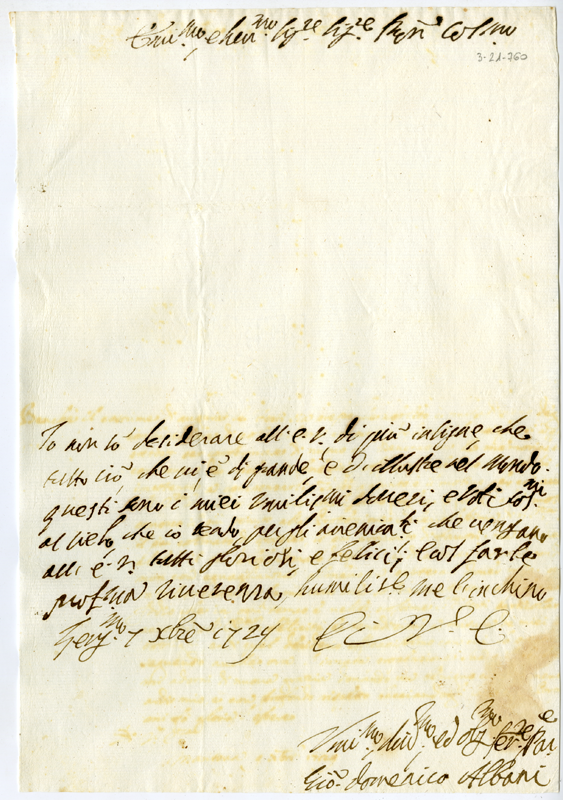 Ecc.mo Sig.re Sig.re Pron Col.mo
3-21-760
Io non sò desiderare all' E. V. di più insigne che
tutto ciò che vi è di grande, e d'illustre nel Mondo.
questi sono i miei umilissimi doveri, e voti
al cielo, che io tendo, per gli che vengano
all' E. V. tutti gloriosi, e felici; e col farle
profonda riverenza, humilis.te me l'inchino
7 xbre 1729
Di V. E.
Umil.mo div.mo ed obl.mo ser.re
Gio. Domenico Albani